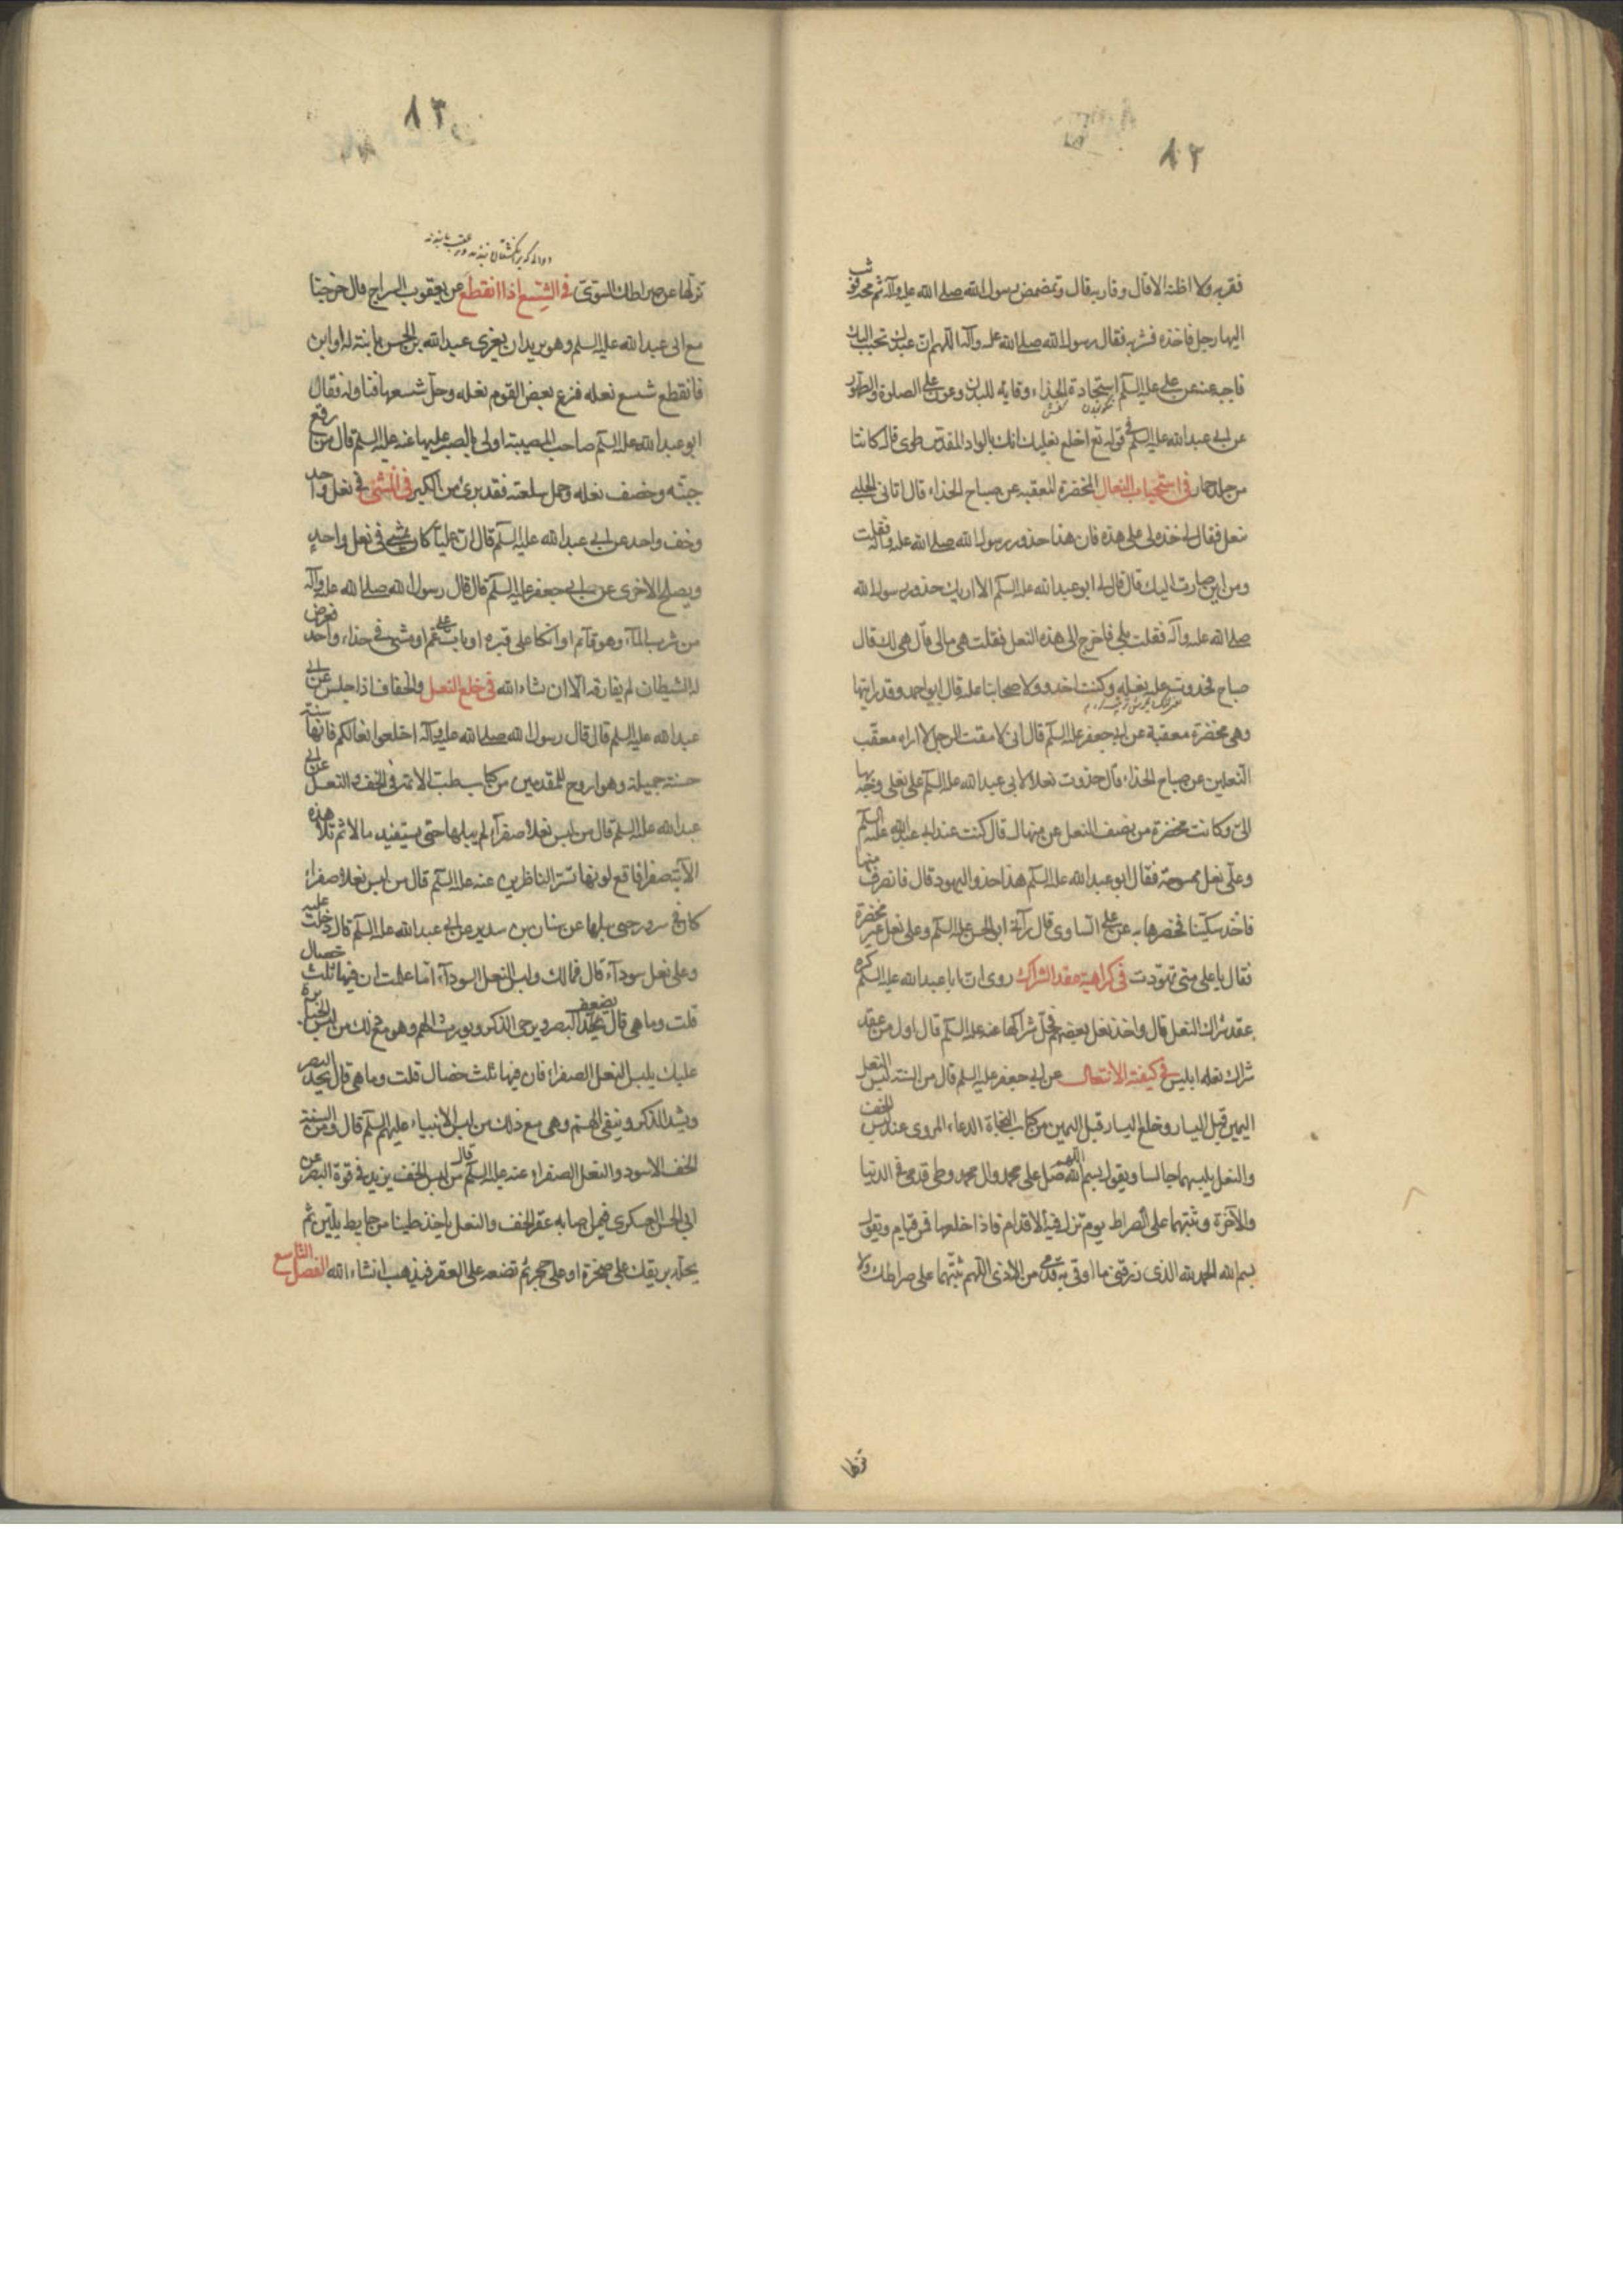 ٨٢
فقربه ولا اظنه الا قال وقاربه قال وتمضمض رسول الله صلى الله عليه وآله ثم مجه فوثب
اليها رجل فاخذه فشربه فقال رسول الله صلى الله عليه وآله اللهم ان عبدك تحبب اليك
فاحبه عنه عن على عليه السلم استجادة الحذاء وقاية للبدن وعون على الصلوة والطهور
عن ابى عبدالله عليه السلم فى قوله تع اخلع نعليك انك بالواد المقدس طوى قال كانتا
من جلد حمار فى استحباب النعال المخضرة المعقبه عن صباح الحذاء قال اتانى الحلبى
نعل فقال لى احذه لى على هذه فان هذا حذو رسول الله صلى الله عليه وآله فقلت
ومن اين صارت اليك قال قال لى ابو عبدالله عليه السلم الا اريك حذو رسول الله
صلى الله عليه وآله فقلت بلى فاخرج الى هذه النعل فقلت هى لى قال هى لك قال
صباح فحذوت عليه نعله وكنت احذو ولاصحابنا عليه قال ابو احمد وقد رايتها
وهى مخضرة معقبة عن ابى جعفر عليه السلم قال انى لامقت الرجل لا اراه معقب
النعلين عن صباح الحذاء قال حذوت نعلا لابى عبدالله عليه السلم على نعل وجه بها
الى وكانت مخضرة من نصف النعل عن منهال قال كنت عند ابى عبدالله عليه السلم
وعلى نعل ممسوحة فقال ابو عبدالله عليه السلم هذا حذو اليهود قال فانصرف منها
فاخذ سكينا فخصرها به عن على الساوى قال رآنى ابو الحسن عليه السلم وعلى نعل غير مخضرة
فقال يا على متى تهودت فى كراهية عقد الشراك روى ان ابا عبدالله عليه السلم كره
عقد شراك النعل قال واخذ نعل بعضهم فحل شراكها عنه عليه السلم قال اول من عقد
شراك نعله ابليس فى كيفية الانتعال عن ابى جعفر عليه السلم قال من السنة لبس النعل
اليمين قبل اليسار وخلع اليسار قبل اليمين من كتاب النجاة الدعاء المروى عند لبس الخف
والنعل يلبسهما جالسا ويقول بسم الله اللهم صل على محمد وال محمد ووطى قدمى فى الدنيا
والآخرة وثبتهما على الصراط يوم تزل فيه الاقدام فاذا خلعهما فمن قيام ويقول
بسم الله الحمد لله الذى رزقنى ما اوقى به قدمى من الاذى اللهم ثبتهما على صراطك ولا
تزلها
٨٣
تزلها عن صراطك السوى فى الشسع اذا انقطع عن يعقوب السراج قال خرجنا
مع ابى عبدالله عليه السلم وهو يريد ان يعزى عبدالله بن الحسن بابنته له او ابن
فانقطع شسع نعله فنزع بعض القوم نعله وحل شسعها فناوله فقال
ابو عبدالله عليه السلم صاحب المصيبة اولى بالصبر عليها عنه عليه السلم قال من رقع
جبته وخصف نعله وحمل سلعته فقد برئ من الكبر فى المشى فى نعل واحد
وخف واحد عن ابى عبدالله عليه السلم قال ان عليا كان يمشى فى نعل واحد
ويصلح الاخرى عن ابى جعفر عليه السلم قال قال رسول الله صلى الله عليه وآله
من شرب الماء وهو قائم او اتكا على قبر او بات على غمر او مشى فى حذاء واحد فعرض
له الشيطان لم يفارقه الا ان شاء الله فى خلع النعل والخفاف اذا جلس عن ابى
عبدالله عليه السلم قال قال رسول الله صلى الله عليه وآله اخلعوا نعالكم فانها سنة
حسنة جميلة وهو اروح للقدمين من كتاب طب الائمة فى الخف والنعل عن ابى
عبدالله عليه السلم قال من لبس نعلا صفرآء لم يبلها حتى يستفيد مالا ثم تلا هذه
الآية صفراء فاقع لونها تسر الناظرين عنه عليه السلم قال من لبس نعلا صفراء
كان فى سرور حتى يبلها عن سنان بن سدير عن ابى عبدالله عليه السلم قال دخلت عليه
وعلى نعل سودآء قال فمالك ولبس النعل السودآء اما علمت ان فيها ثلث خصال
قلت وما هى قال يضعف البصر ويرخى الذكر ويورث الهم وهو مع ذلك من لبس الجبابرة
عليك بلبس النعل الصفراء فان فيها ثلث خصال قلت وما هى قال يحد البصر
ويشد الذكر وينفى الهم وهى مع ذلك من لبس الانبياء عليهم السلم قال ومن السنة
الخف الاسود والنعل الصفراء عنه عليه السلم قال من لبس الخف يزيد فى قوة البصر عن
ابى الحسن العسكرى فيمن اصابه عقر الخف والنعل ياخذ طينا من حايط بلبن ثم
يحكه بريقك على صخرة او على حجر ثم تضعه على العقر فيذهب انشاء الله الفصل التاسع